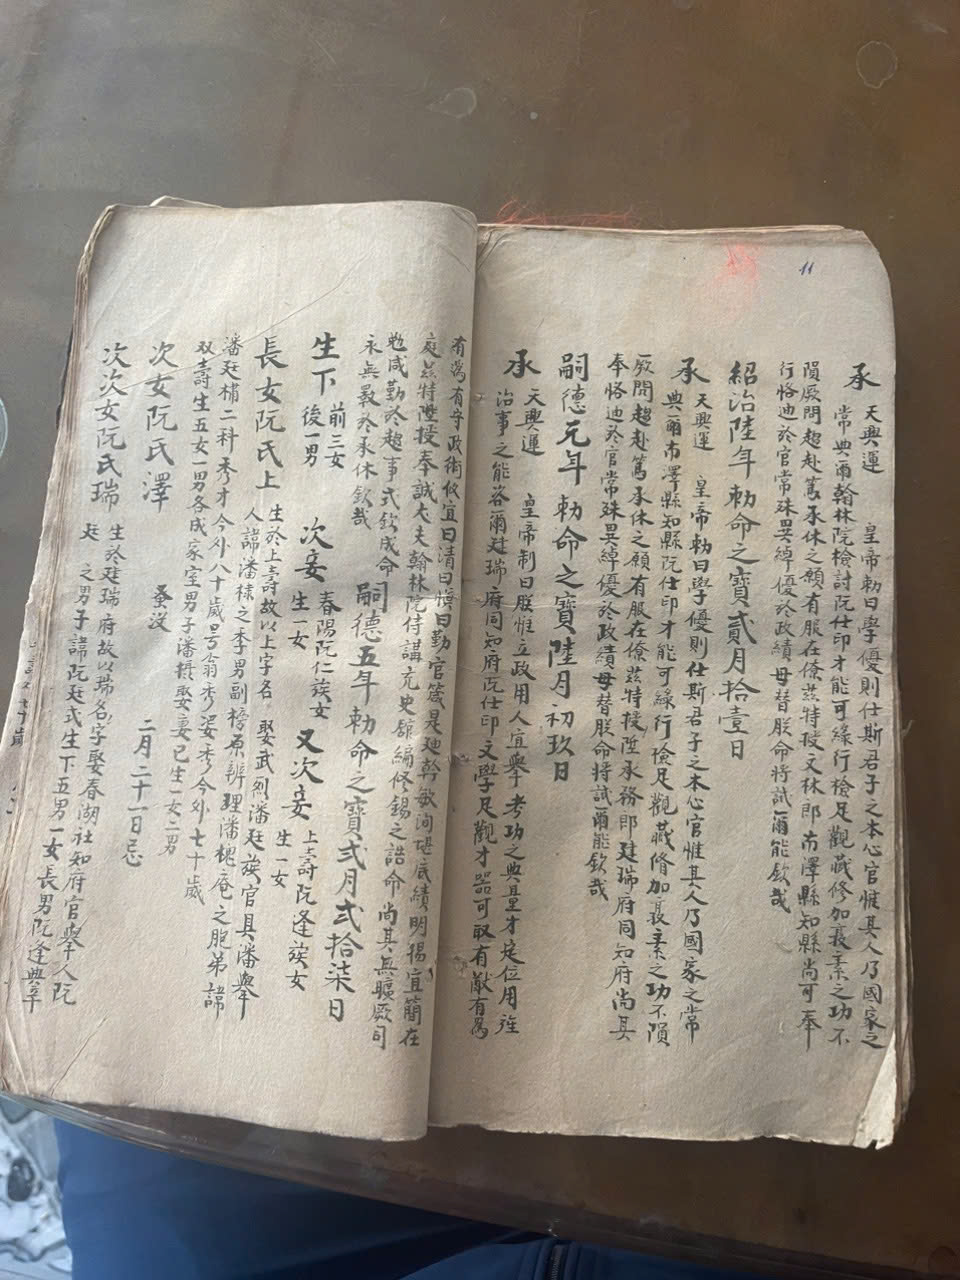 11
承天興運 皇帝勅曰學優則仕斯君子之本心官惟其人乃國家之
常典爾翰林院檢討阮仕印才能可綠行檢足觀藏修加裊素之功不
隕厥問趨赴篤承休之願有服在僚茲特授文林郎南澤縣知縣尚可奉
行恪迪於官常殊異綽優於政績毋替朕命將試爾能欽哉
紹治陸年勅命之寶貳月拾壹日
承天興運 皇帝勅曰學優則仕斯君子之本心官惟其人乃國家之常
典爾南澤縣知縣阮仕印才能可綠行檢足觀藏脩加裊素之功不隕
厥問趨赴篤承休之願有服在僚茲特授陞承務郎建瑞府同知府尚其
奉恪迪於官常殊異綽優於政績毋替朕命將試爾能欽哉
嗣德元年勅命之寶陸月初玖日
承天興運 皇帝制曰朕惟立政用人宜舉考功之典量才定位用旌
治事之能咨爾建瑞府同知府阮仕印文學足觀才器可取有猷有爲
有爲有守政術攸宜曰清曰愼曰勤官箴是迪幹敏洵堪底績明揚宜簡在
庭茲特陞授奉誠大夫翰林院侍講充史館編修錫之誥命尚其無曠厥司
勉咸勤於趨事式欽成命
永無斁於承休欽哉 嗣德五年勅命之寶貳月貳拾柒日
生下 前三女 後一男 次妾 春陽阮仁族女 生一女 又次妾 上壽阮逢族女 生一女
長女阮氏上 生於上壽故以上字名 娶武烈潘廷族官員潘舉
人諱潘棣之季男副榜原辨理潘槐庵之胞弟諱
潘廷樯二科秀才今外八十歲号翁秀姿秀今外七十歲
双壽生五女一男各成家室男子潘摄娶妻已生一女二男
次女阮氏澤 蚤沒 二月二十一日忌
次次女阮氏瑞 生於建瑞府故以瑞名字娶春湖社知府官舉人阮
廷 之男子諱阮廷式生下五男一女長男阮逢典享